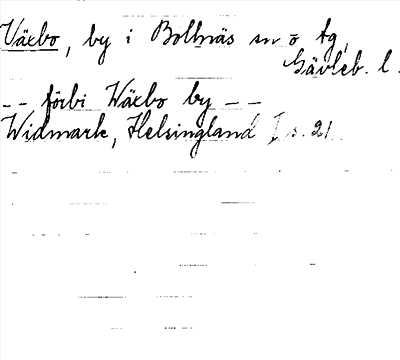 Växbo, by i Bollnäs sn o tg,
Gävleb. l.
-- förbi Wäxbo by --
Widmark, Helsingland I s. 21